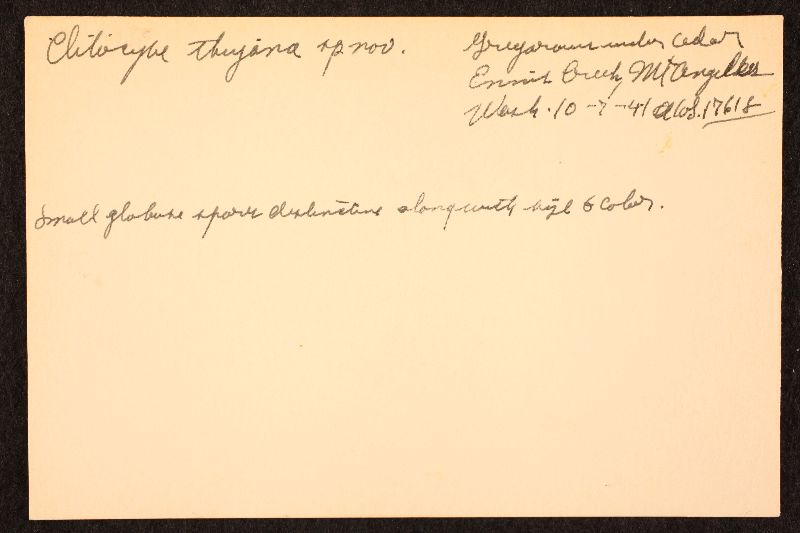 Clitocybe thujana sp nov.
Gregarious under cedar
Ennis Creek, Mt Angeles
Wash. 10-7-41 AHS. 17618
Small globose spores distinctive along with size & color.